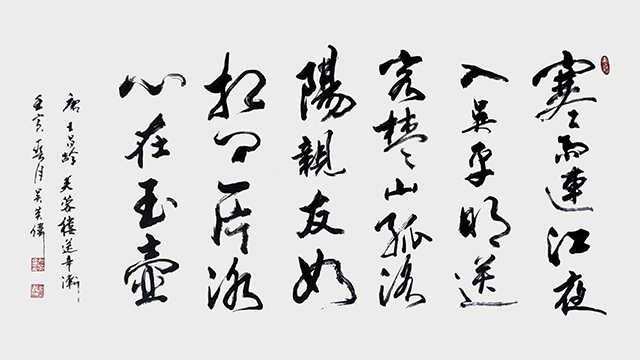 寒雨連江夜
入吳平明送
客楚山孤洛
陽親友如
相問一片冰
心在玉壺
唐王昌齡芙蓉樓送辛漸
壬寅夏月吳